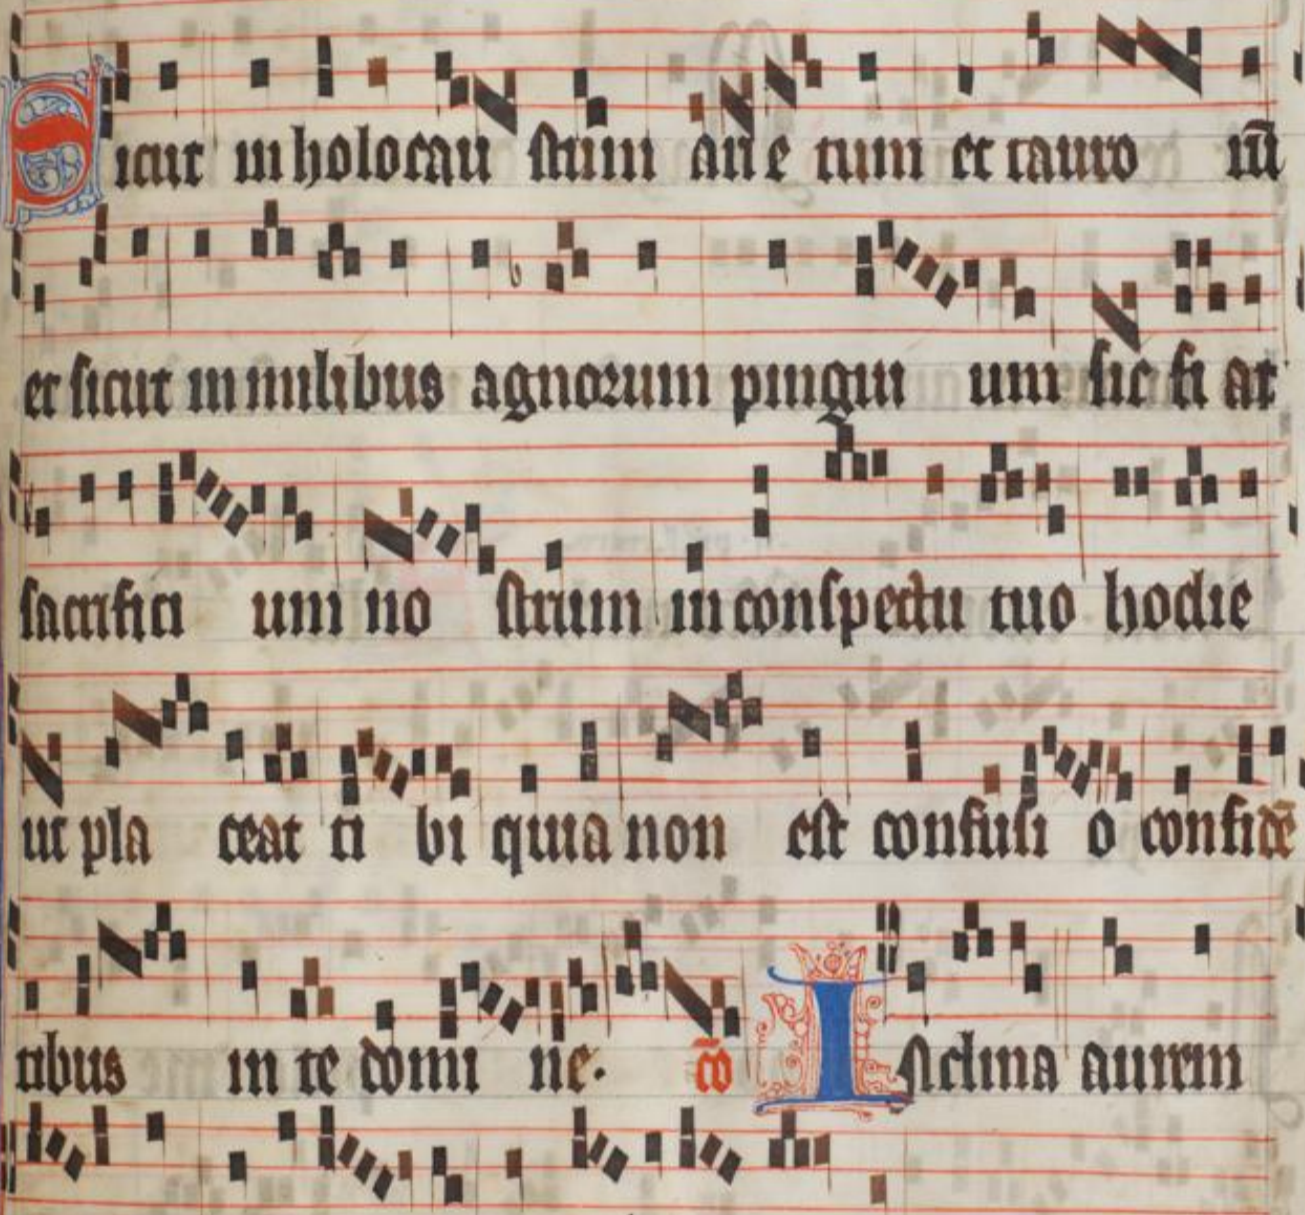 Sicut in holocau stum arie tum et tauro ru̅
et sicut in milibus agnorum pingui um sic fi at
sacrifici um no strum in conspectu tuo hodie
ut pla ceat ti bi quia non est confusi o confide̅
tibus in te domi ne. co̅ Inclina aurem